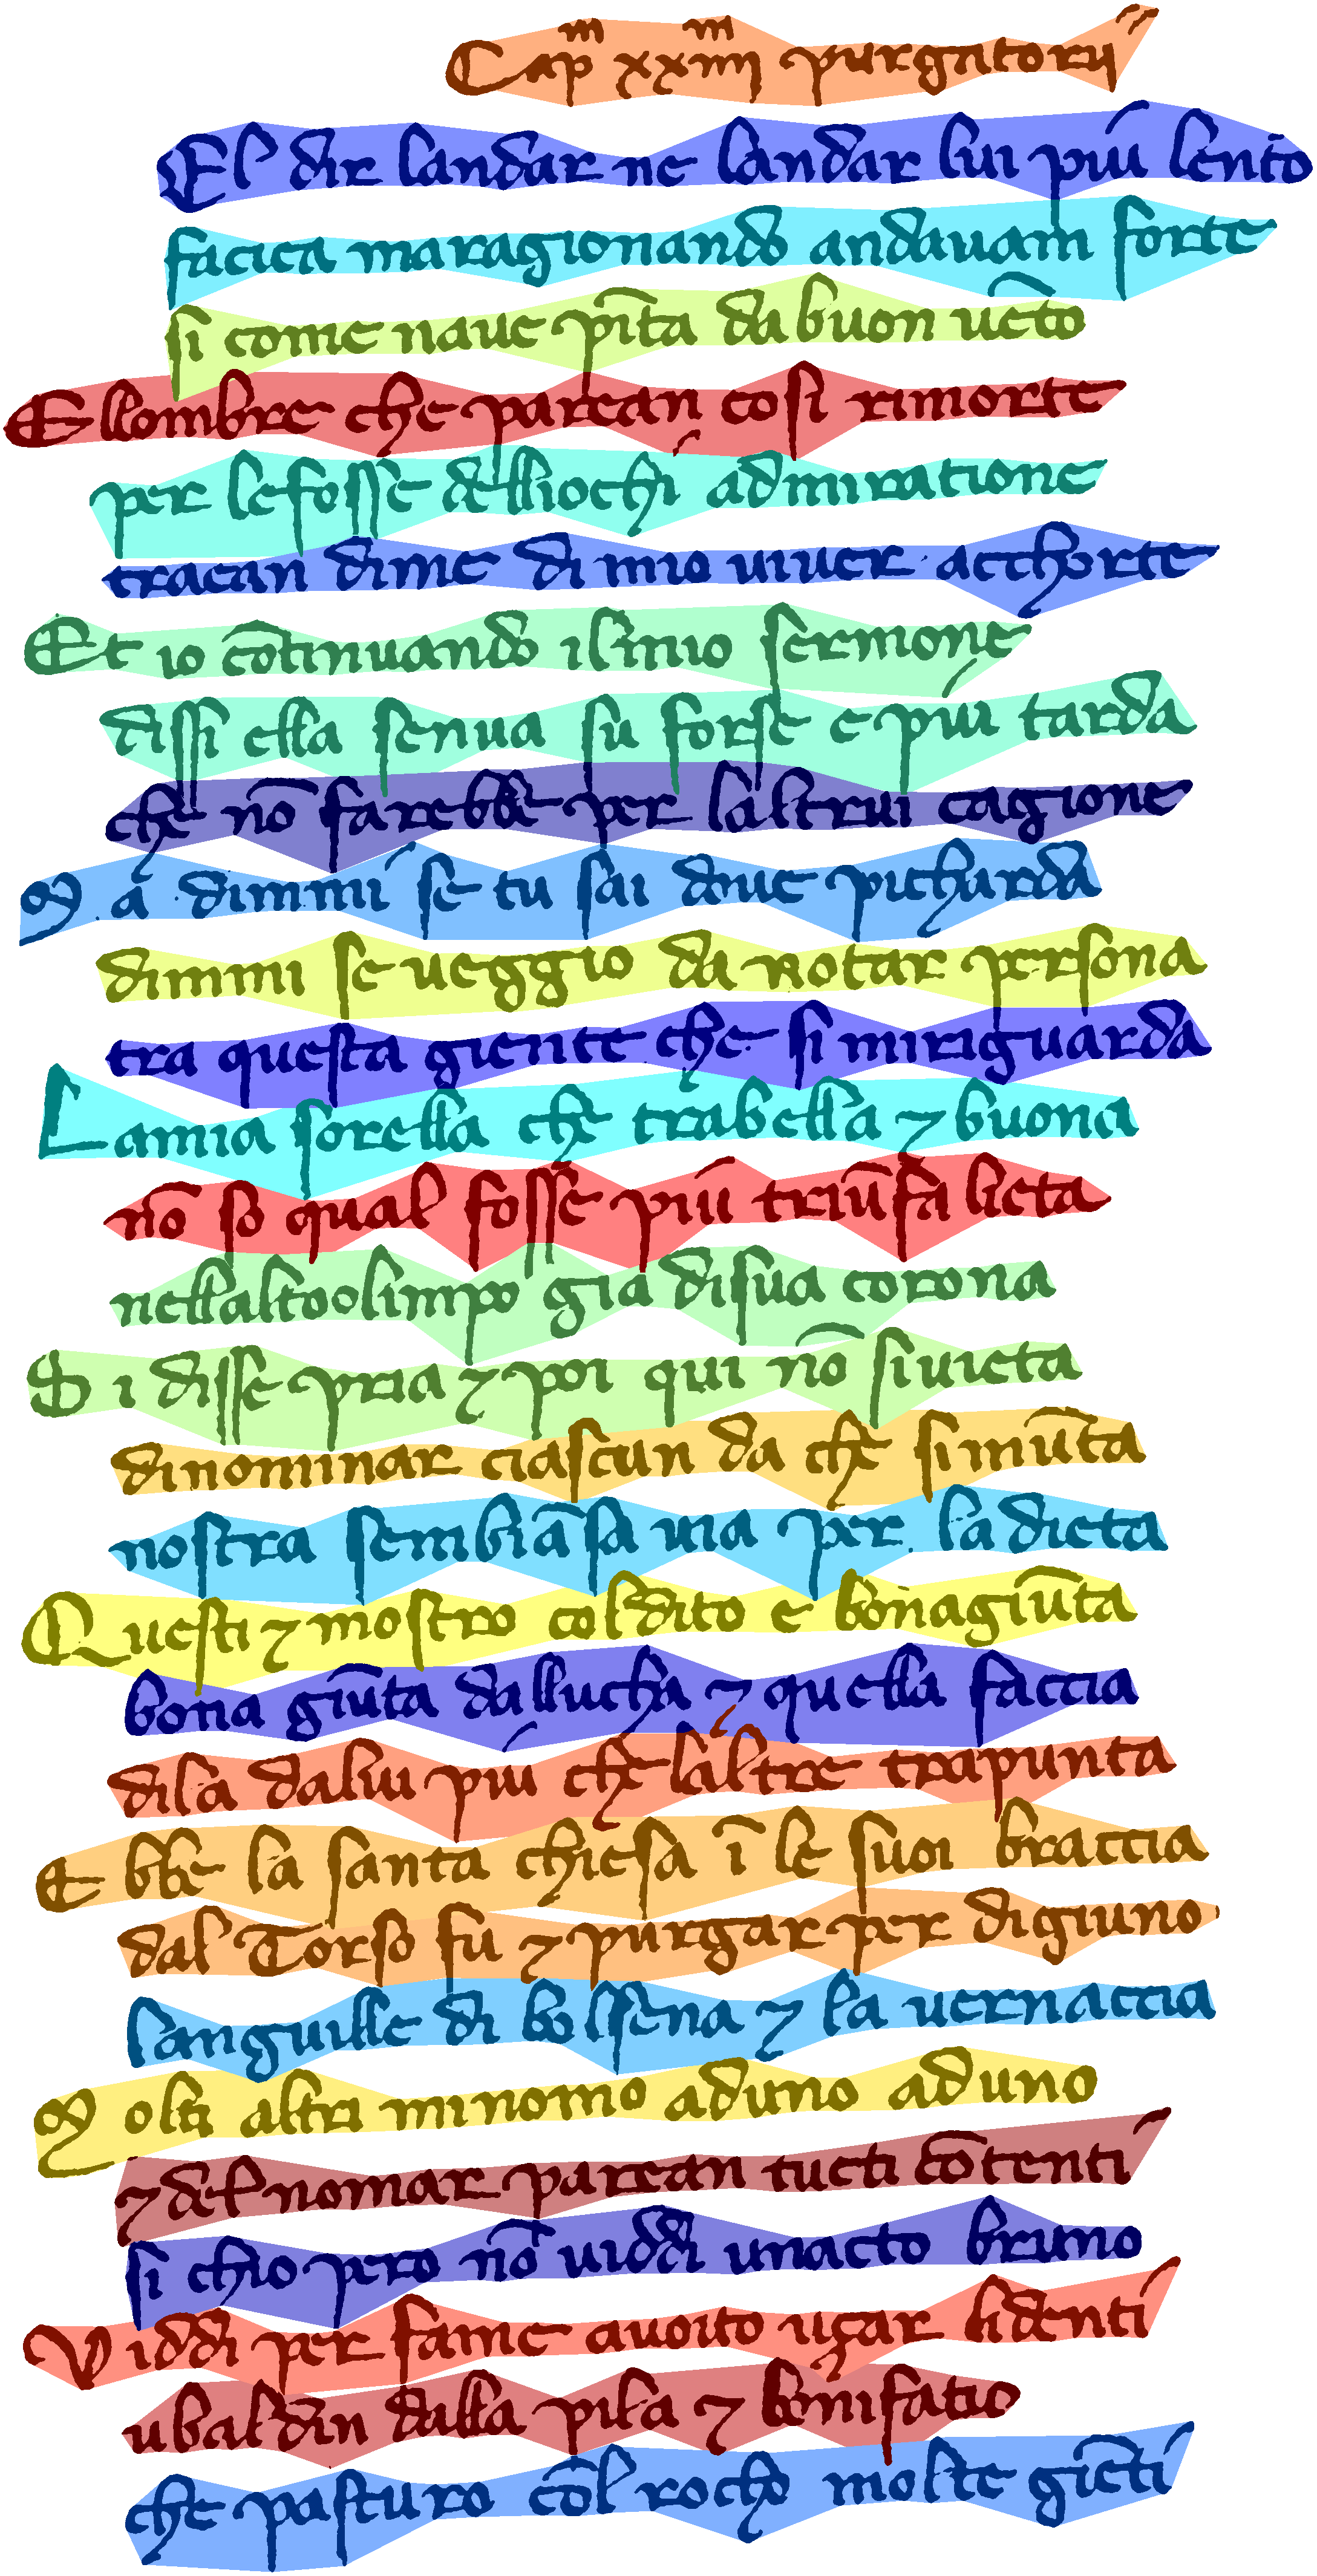 Cap̃ᵐ xxiiijᵐ purgatorij
El dir landar ne landar lui piu lento
faciea maragionando andauam forte
si come naue pĩta dabuon uẽto
Ellombre che parean cosi rimorte
per lefosse delliochi admiratione
traean dime di mio uiuer accthorte
Et io cõtinuando ilmio sermone
dissi ella senua su forse e piu tarda
che nõ farebbe per laltrui cagione
Ma dimmi se tu sai doue picharda
dimmi se ueggio da notar persona
tra questa giente che si miriguarda
Lamia sorella che trabella ⁊ buona
nõ so qual fosse piu triũfa lieta
nellaltoolimpo gia disua corona
Si disse pria ⁊ poi qui nõ siuieta
dinominar ciascun da che simũta
nostra sembiãsa uia per la dieta
Questi ⁊ mostro coldito e bonagiũta
bona giũta dallucha ⁊ quella faccia
dila dalui piu che laltre trapunta
Ebbe la santa chiesa ĩ le suoi braccia
dal Torso fu ⁊ purgar per digiuno
languille di bolsena ⁊ la uernaccia
Molti altri minomo aduno aduno
⁊del nomar parean tucti cõtenti
si chio pero nõ uiddi unacto bruno
Viddi per fame auoito ugar lidenti
ubaldin dalla pila ⁊ bonifatio
che pasturo cõl rocho molte giẽti